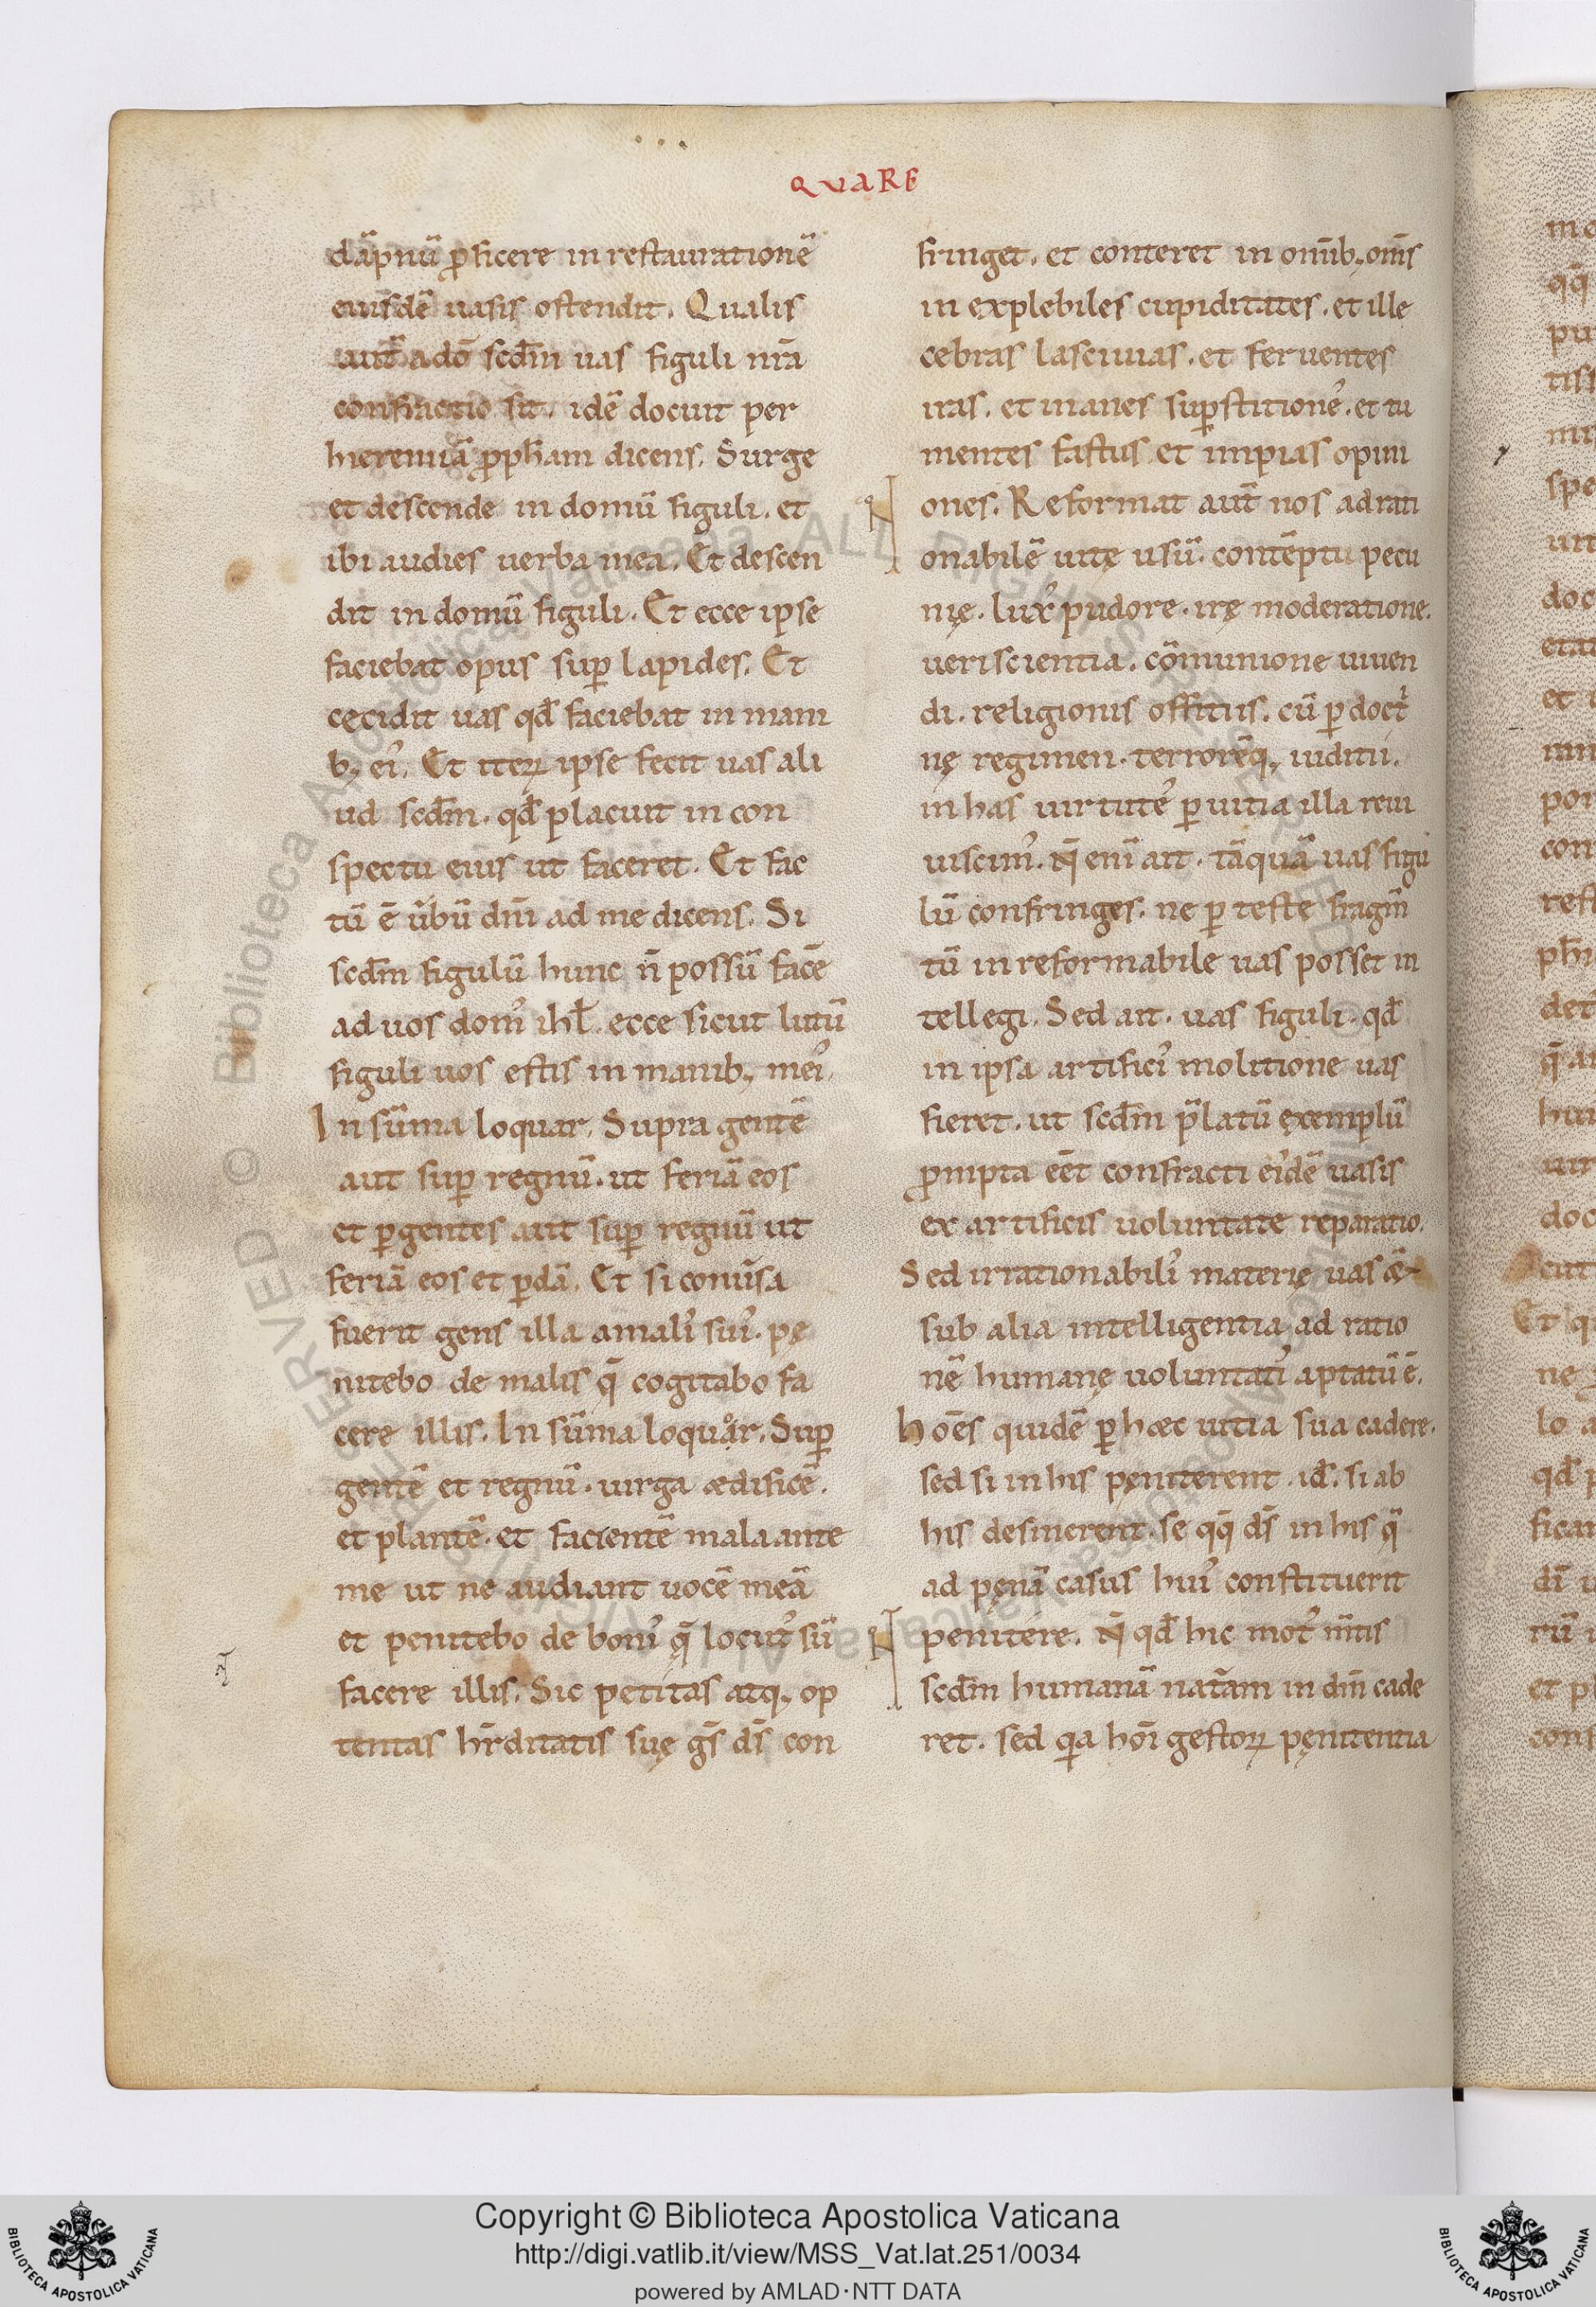 QVARE
dāpnū ꝓficere in restaurationē
eiusdē uasis ostendit. Qualis
autē a dō scdm̄ uas figuli nr̄a
confractio sit. idē docuit per
hieremiā ꝓph̄am dicens. Surge
et descende in domū figuli. et
ibi audies uerba mea. Et descen
dit in domū figuli. Et ecce ipse
faciebat opus sup̄ lapides. Et
cecidit uas qd̄ faciebat in mani
b; ei'. Et iteꝝ ipse fecit uas ali
ud scdm̄. qd̄ placuit in con
spectu eius ut faceret. Et fac
tū ē ūbū dn̄i ad me dicens. Si
scdm̄ figulū hunc n̄ possū facē
ad uos dom' ihl̄. ecce sicut lutū
figuli uos estis in manib; mei'.
In sūma loquar. Supra gentē
aut sup̄ regnū. ut feriā eos
et ꝑ gentes aut sup̄ regnū ut
feriā eos et ꝑdā. Et si conūsa
fuerit gens illa a mali' sui'. pę
nitebo de malis q̄ cogitabo fa
cere illis. In sūma loquar. Sup̄
gentē et regnū. uirga ædificē.
et plantē. et facientē mala ante
me ut ne audiant uocē meā
et penitebo de boni' q̄ locut' sū
facere illis. Sic petitas atq; op
tentas hr̄ditatis suę gs̄ ds̄ con
fringet. et conteret in omīb; om̄s
in explebiles cupiditates. et ille
cebras lasciuias. et feruentes
iras. et inanes suꝑstitione'. et tu
mentes fastus et impias opini
ones. Reformat aut̄ nos ad rati
onabilē uitę usū. contēptu pecu
nię. lux' pudore. irę moderatione.
ueri scientia. cōmunione uiuen
di. religionis offitiis. cū ꝑ doct'i
nę regimen. terrorēq; iuditii.
in has uirtute' ꝑ uitia illa reui
uiscim'. N̄ enī ait. tāquā uas figu
lū confringes. ne ꝑ teste fragm̄
tū in reformabile uas posset in
tellegi. Sed ait. uas figuli. qd̄
in ipsa artifici' molitione uas
fieret. ut scdm̄ p̄latū exemplū
ꝓmpta eēt confracti ei'dē uasis
ex artificis uoluntate reparatio.
Sed irrationabili' materię uas
sub alia intelligentia ad ratio
nē humanę uoluntati' aptatū ē.
hoēs quidē ꝑ hæc uitia sua cadere.
sed si in his pęniterent. id̄. si ab
his desinerent. se qq̄ ds̄ in his q̄
ad pęnā casus hui' constituerit
penitere. N̄ qd̄ hic mot' m̄tis
scdm̄ humanā nat̄am in dm̄ cade
ret. sed qa hoī gestoꝝ pęnitentia
Copyright © Biblioteca Apostolica Vaticana
http://digi.vatlib.it/view/MSS_Vat.lat.251/0034
powered by AMLAD·NTT DATA
BIBLIOTECA APOSTOLICA VATICANA
BIBLIOTECA APOSTOLICA VATICANA